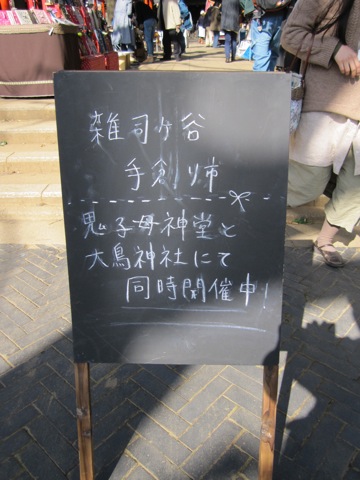 雑司ヶ谷
手創り市
鬼子母神堂と
大鳥神社にて
同時開催中!